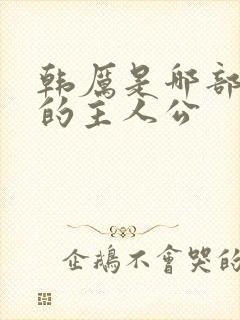 韩厲是那部
的主人公
企鵝不會哭的